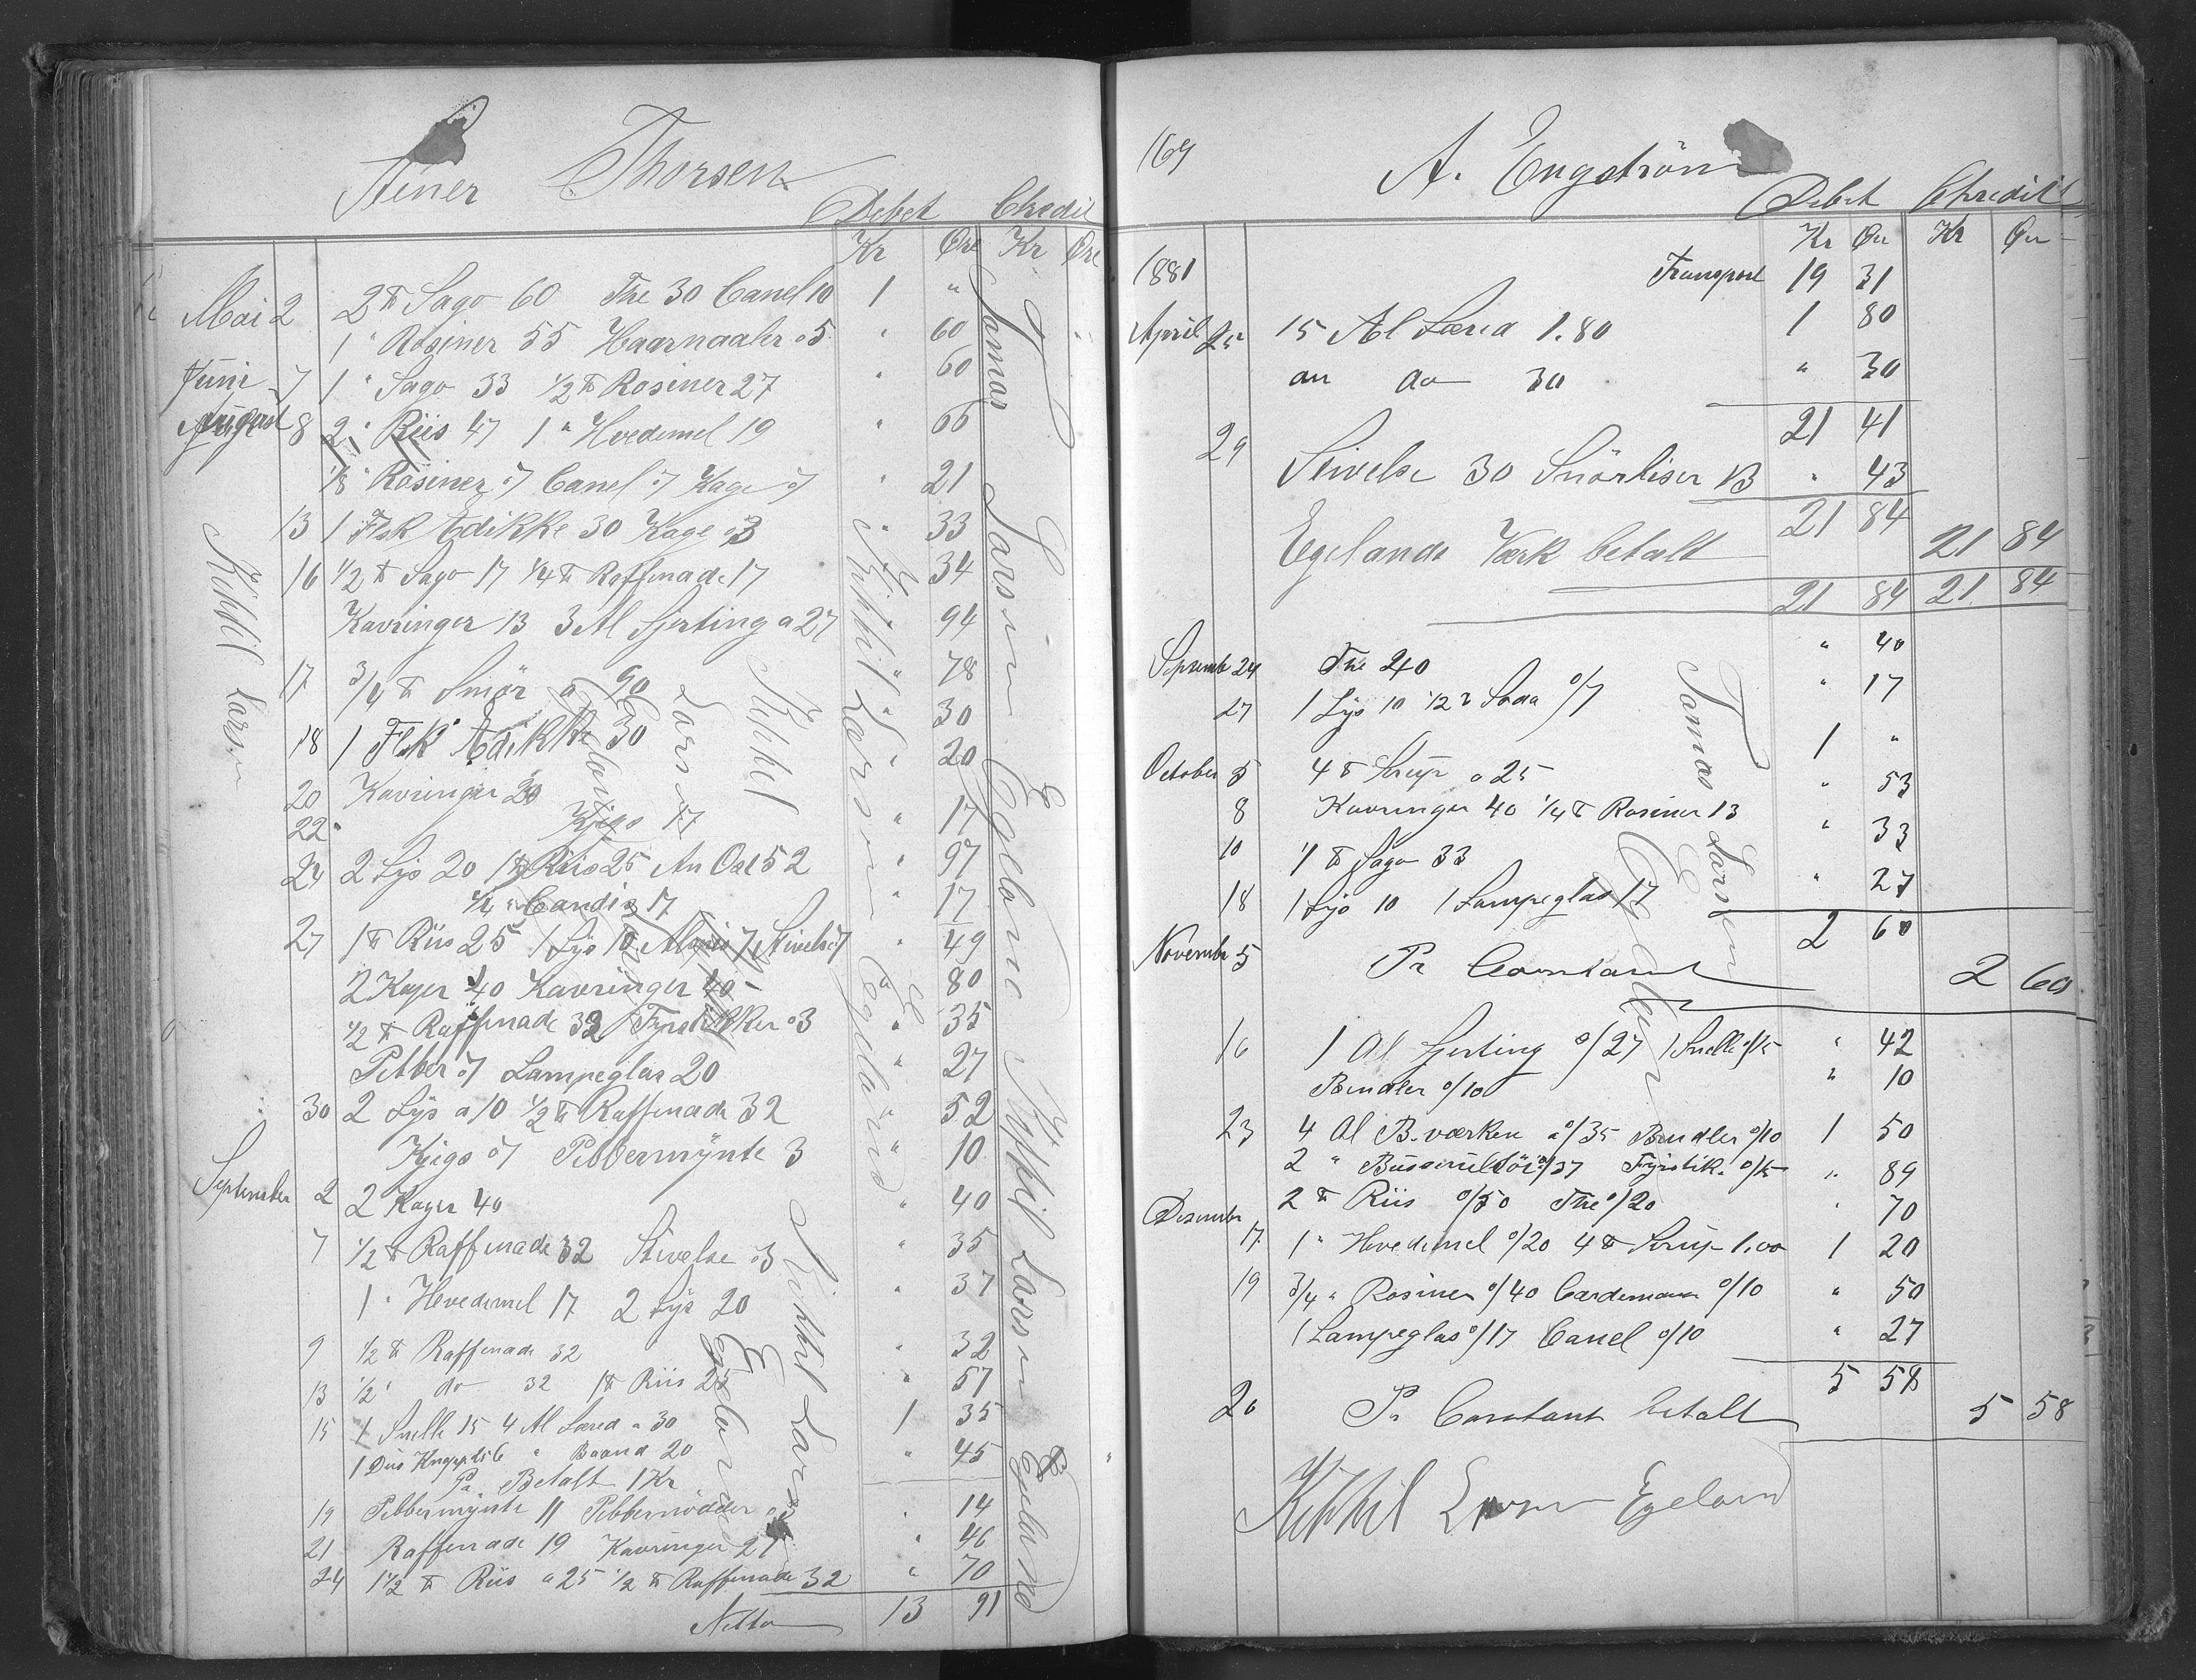 Stener Thorsen
Debet Chredit
Kr Øre Kr Øre
Mai 2 2 ℔ Sago 60 The 30 Canel 10 1 "
1 " Rosiner 55 Haarnaaler 05 " 60
Juni 7 1 " Sago 33 1/2 ℔ Rosiner 27 " 60
August 8 2 " Riis 47 1 " Hvedemel 19 " 66
1/8 " Rosiner 07 Canel 07 Kage 07 " 21
13 1 Flsk Edikke 30 Kage 03 " 33
16 1/2 ℔ Sago 17 1/4 ℔ Raffinade 17 " 34
Kavringer 13 3 Al Sjerting a 27 94
17 3/4 ℔ Smör a 90 " 78
18 1 Flsk Edikke 30 " 30
20 Kavringer 20 " 20
22 Kjigs 17 " 17
24 2 Lys 20 1 ℔ Riis 25 An Ost 52 " 97
1/4 " Candis 17 " 17
27 1 ℔ Riis 25 1 Lys 10 7 Stivelse 07 " 49
2 Kager 40 Kavringer 40 " 80
1/2 ℔ Raffinade 32 Fyrstikker 03 " 35
Pebber 07 Lampeglas 20 " 27
30 2 Lys a 10 1/2 ℔ Raffinade 32 " 52
Kjigs 07 Pebbermynte 3 " 10
September 2 2 Kager 40 " 40
7 1/2 ℔ Raffinade 32 Stivelse 03 " 35
1 " Hvedemel 17 2 Lys 20 " 37
9 1/2 ℔ Raffinade 32 " 32
13 1/2 " do 32 1 ℔ Riis 25 " 57
15 1 Snelle 15 4 Al Lærred a 30 1 35
1 Dus Baand 20 " 45
Pa Betalt 1 Kr
19 Pebbermynte 11 Pebbernödder 03 " 14
21 Raffinade 19 Kavringer 27 " 46
24 1 1/2 ℔ Riis a 25 1/2 ℔ Raffinade 32 " 70
Netto 13 91
Kittil Larsen
Kittil Larsen Egeland
Kittil Larsen Egeland
Kittil Larsen Egeland
Tamas Larsen Egeland Kittil Larsen Egeland
169
A. Engström
Debet Chredit
Kr Ør Kr Ør
1881 Transport 19 31
April 25 15 Al Lærred 1.80 1 80
an do 30 " 30
21 41
29 Stivelse 30 Snörliser 13 " 43
21 84
Egelands Værk betalt 21 84
21 84 21 84
Septembr 24 The 40 " 40
27 1 Lys 10 1/2 ℔ Soda 0/7 " 17
October 5 4 ℔ Sirup a 25 1 "
8 Kavringer 40 1/4 ℔ Rosiner 13 " 53
10 1 ℔ Sago 33 " 33
18 1 Lys 10 1 Lampeglas 17 " 27
2 60
November 5 Pr Constant 2 60
16 1 Al Sjerting 0/27 1 Snelle 0/15 " 42
Bendler 0/10 " 10
23 4 Al B.værken a 0/35 Bendler 0/10 1 50
2 " 0/37 Fyrstik. 0/15 " 89
2 ℔ Riis 0/50 The 0/20 " 70
Desember 17 1 " Hvedemel 0/20 4 ℔ Sirup 1.00 1 20
19 3/4 " Rosiner 0/40 Cardemom 0/10 " 50
1 Lampeglas 0/17 Canel 0/10 " 27
5 58
20 Pr Constant betalt 5 58
Tamas Larsen Egeland
Kittil Larsen Egeland